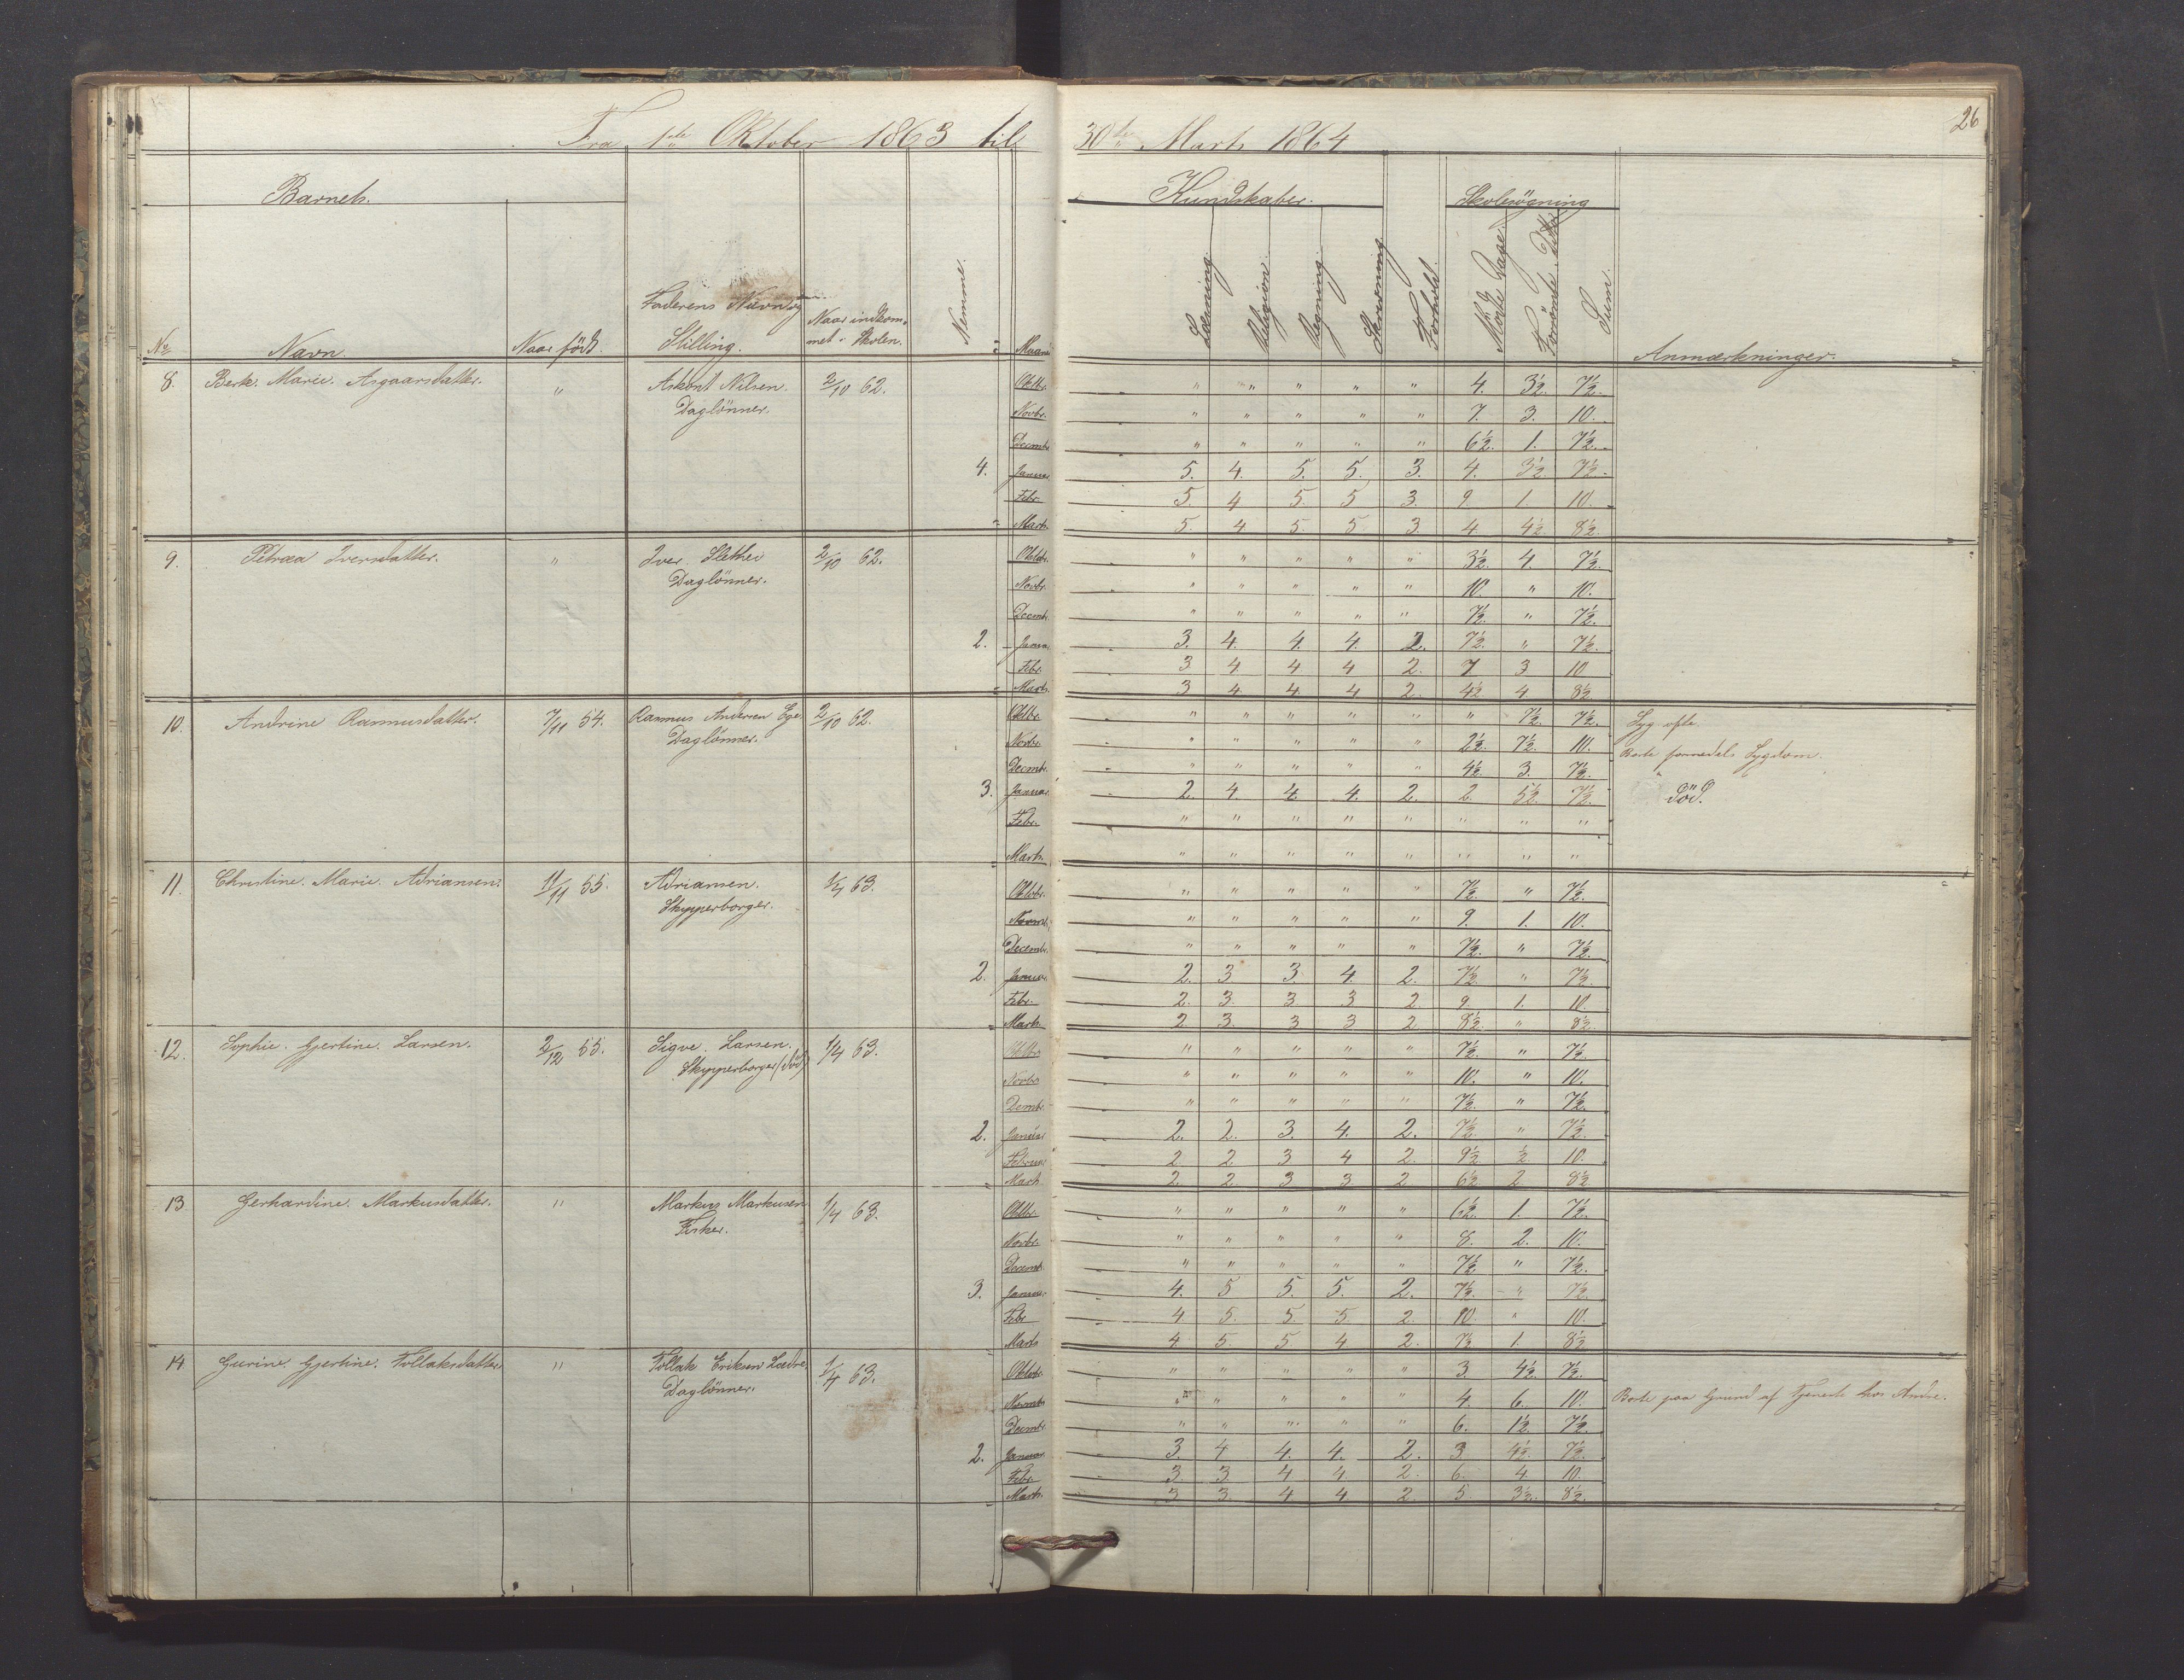 26
Fra 1ste Oktober 1863 til 30te Marts 1864
Barnets. Kundskaber. Skolesögning
No Navn. Naar födt. Faderens Navn og Stilling. Naar indkommet i Skolen. Nemme. Maaned Læsning Religion. Regning. Skrivning Forhold. Mödte Dage. Forsömte Ditto Sum. Anmærkninger.
8. Berte. Marie. Asgaarsdatter. " Askont Nilsen. Daglönner. 2/10 62.
Oktbr. " " " " " 4. 3½. 7½.
Novbr. " " " " " 7. 3. 10.
Decmb. " " " " " 6½. 1. 7½.
4. Januar 5. 4. 5. 5. 3. 4. 3½. 7½.
Febr. 5 4 5. 5 3. 9. 1. 10.
Marts. 5. 4 5. 5 3. 4. 4½. 8½.
9. Petraa Iversdatter. " Iver Slethei Daglönner. 2/10 62.
Oktobr. " " " " " 3½. 4. 7½.
Novbr. " " " " " 10. " 10.
Decmb. " " " " " 7½. " 7½.
2. Januar 3. 4. 4. 4. 2. 7½. " 7½.
Febr. 3 4 4 4 2. 7 3 10
Marts. 3 4 4 4 2. 4½ 4 8½
10. Andrine Rasmusdatter. 7/11 54. Rasmus Andersen Ege Daglönner. 2/10 62.
Oktbr. " " " " " " 7½. 7½. Syg ofte.
Novbr. " " " " " 2½. 7½. 10. Borte formedels Sygdom.
Decmb. " " " " " 4½. 3. 7½. "
3. Januar. 2. 4. 4. 4. 2. 2. 5½. 7½. död.
Febr. " " " " " " " "
Marts. " " " " " " " "
11. Christine. Marie. Adriansen. 11/11 55. Adriansen. Skipperborger. 1/4 63.
Oktobr. " " " " " 7½. " 7½.
Novmb. " " " " " 9. 1. 10.
Decembr. " " " " " 7½. " 7½.
2. Januar. 2. 3 3. 4. 2. 7½. " 7½.
Febr. 2. 3. 3 3 2. 9. 1. 10
Marts. 2 3. 3 3 2. 8½. " 8½.
12. Sophie. Gjertine. Larsen. 2/12 55. Sigve. Larsen. Skipperborger (död) 1/4 63.
Oktbr " " " " " 7½. " 7½.
Novbr " " " " " 10. " 10.
Demb. " " " " " 7½. " 7½.
2. Januar 2. 2. 3. 4. 2. 7½. " 7½.
Februar 2 2 3 4 2. 9½ ½ 10.
Marts 2. 2. 3 3 2 6½ 2 8½
13 Gerhardine. Markusdatter. " Markus Markusen Fisker. 1/4 63.
Oktbr. " " " " " 6½. 1. 7½.
Novbr. " " " " " 8. 2. 10.
Decemb. " " " " " 7½. " 7½.
3. Januar. 4. 5 5. 5. 2. 7½. " 7½.
Febr 4 5. 5. 5 2. 10. " 10.
Marts 4 5. 5 4 2. 7½ 1. 8½
14 Gurine. Gjertine. Tollaksdatter. " Tollak Eriksen Daglönner. 1/4 63.
Oktobr. " " " " " 3. 4½. 7½.
Novmb " " " " " 4. 6. 10. Borte paa Grund af Tjeneste hos Andre.
Decmb. " " " " " 6. 1½. 7½.
2. Januar 3. 4 4. 4. 2. 3 4½. 7½.
Febr. 3 3 4 4 2. 6. 4 10.
Marts. 3 3. 4 4 2. 5. 3½. 8½.